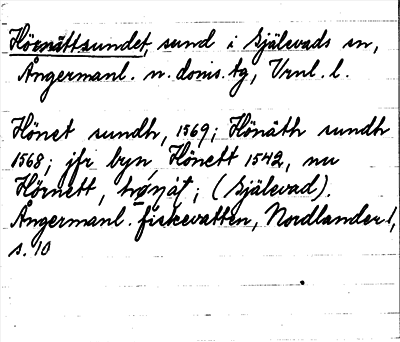 Hörnättsundet, sund i Själevads sn,
Ångermanl. n. doms. tg, Vrnl. l.
Hönet sundh, 1569; Hönäth sundh
1568; jfr byn Hönett 1542, nu
Hörnett, ; (Själevad).
Ångermanl. fiskevatten, Nordlander 1,
s. 10